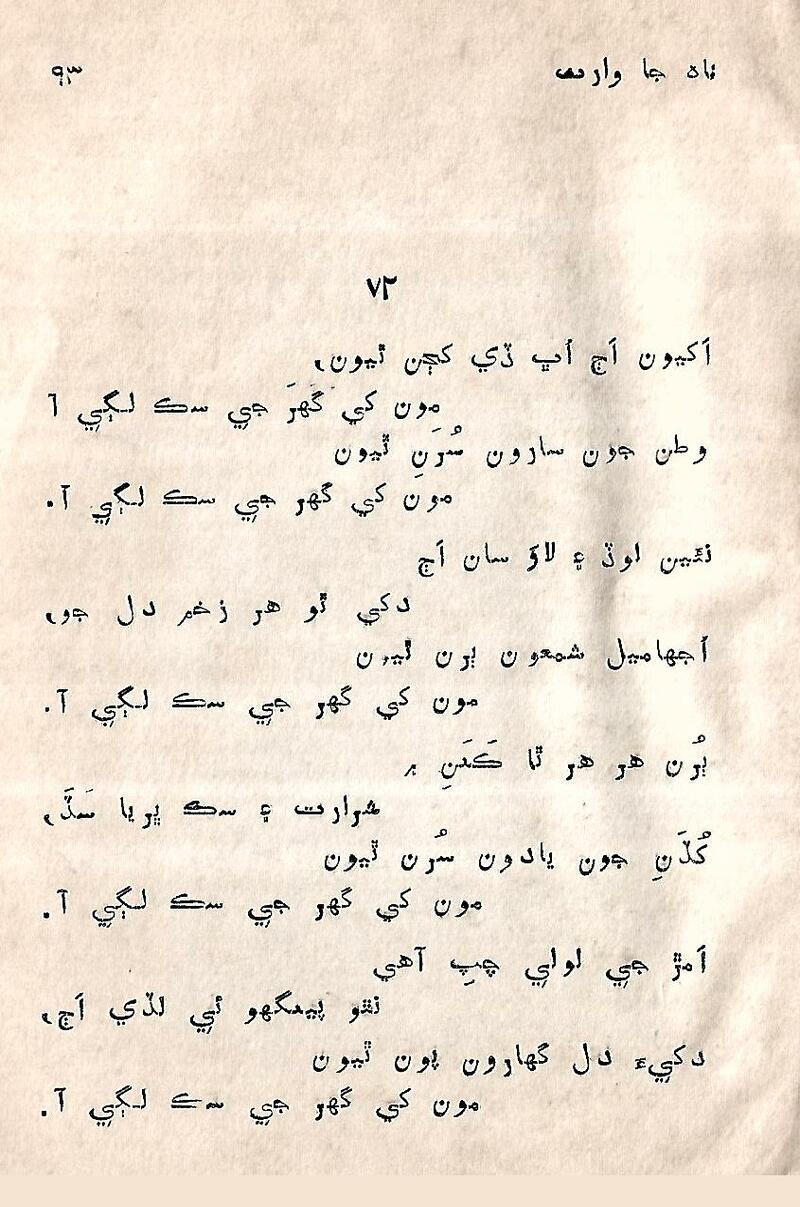 ناه جا وارث ٩٣
٧٢
اَکيون اَڄ اُڀ ڏي کڄن ٿيون،
مون کي گهرَ جي سڪ لڳي آ
وطن جون سارون سُرَنِ ٿيون
مون کي گهر جي سڪ لڳي آ.
نٿين لوڏ ۽ لاوَ سان اَڄ
دکي ٿو هر زخم دل جو،
اَجهاميل شمعون ٻرن ٿيون
مون کي گهر جي سڪ لڳي آ.
ٻُرن هر هر ٿا ڪَنَنِ ۾
شرارت ۽ سڪ ڀريا سَڏَ،
کُڏَنِ جون يادون سُرن ٿيون
مون کي گهر جي سڪ لڳي آ.
اَمڙ جي لولي چپِ آهي
نٿو پينگهو ئي لڏي اَڄ،
دکيءَ دل گهارون پون ٿيون
مون کي گهر جي سڪ لڳي آ.